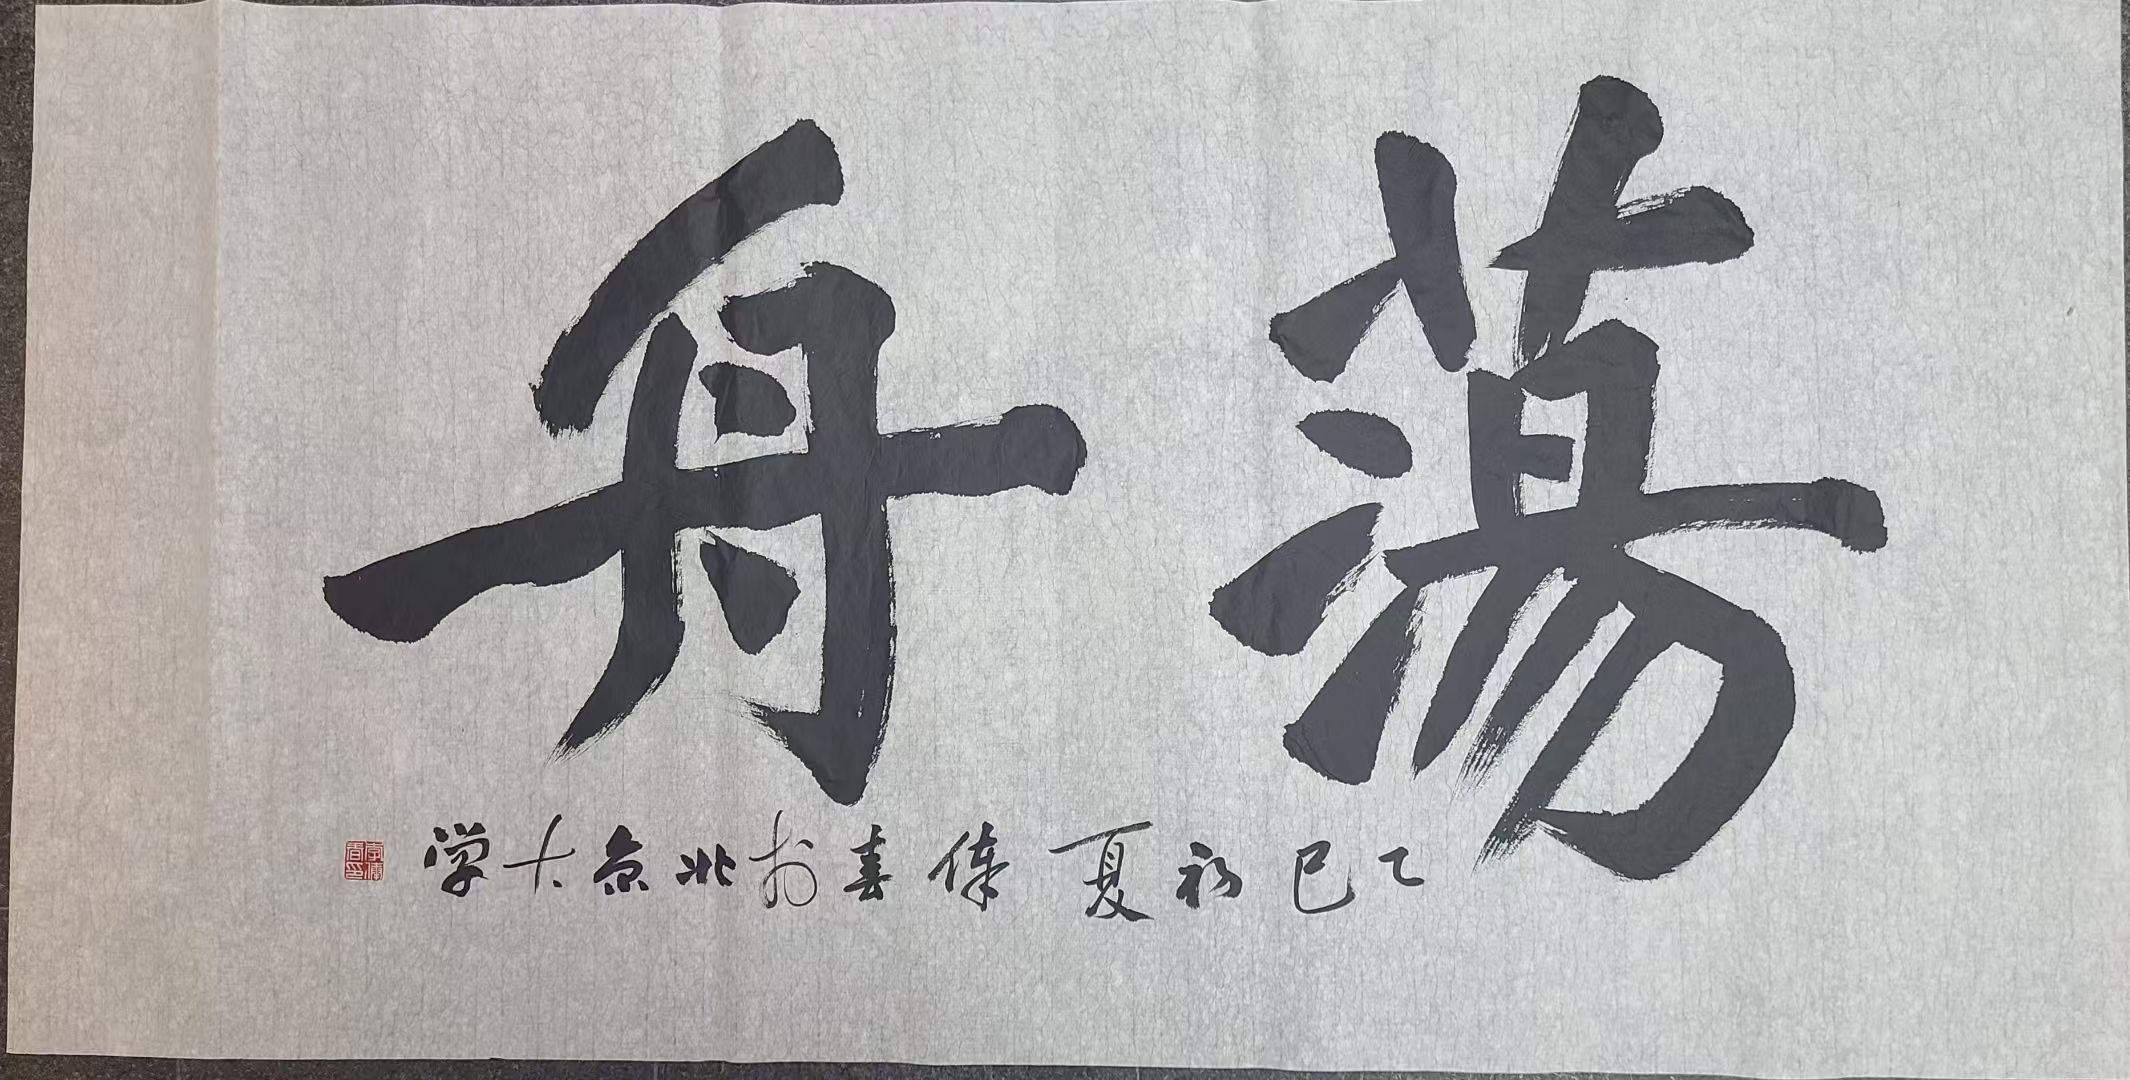 蕩舟
乙巳初夏偉春於北京大学